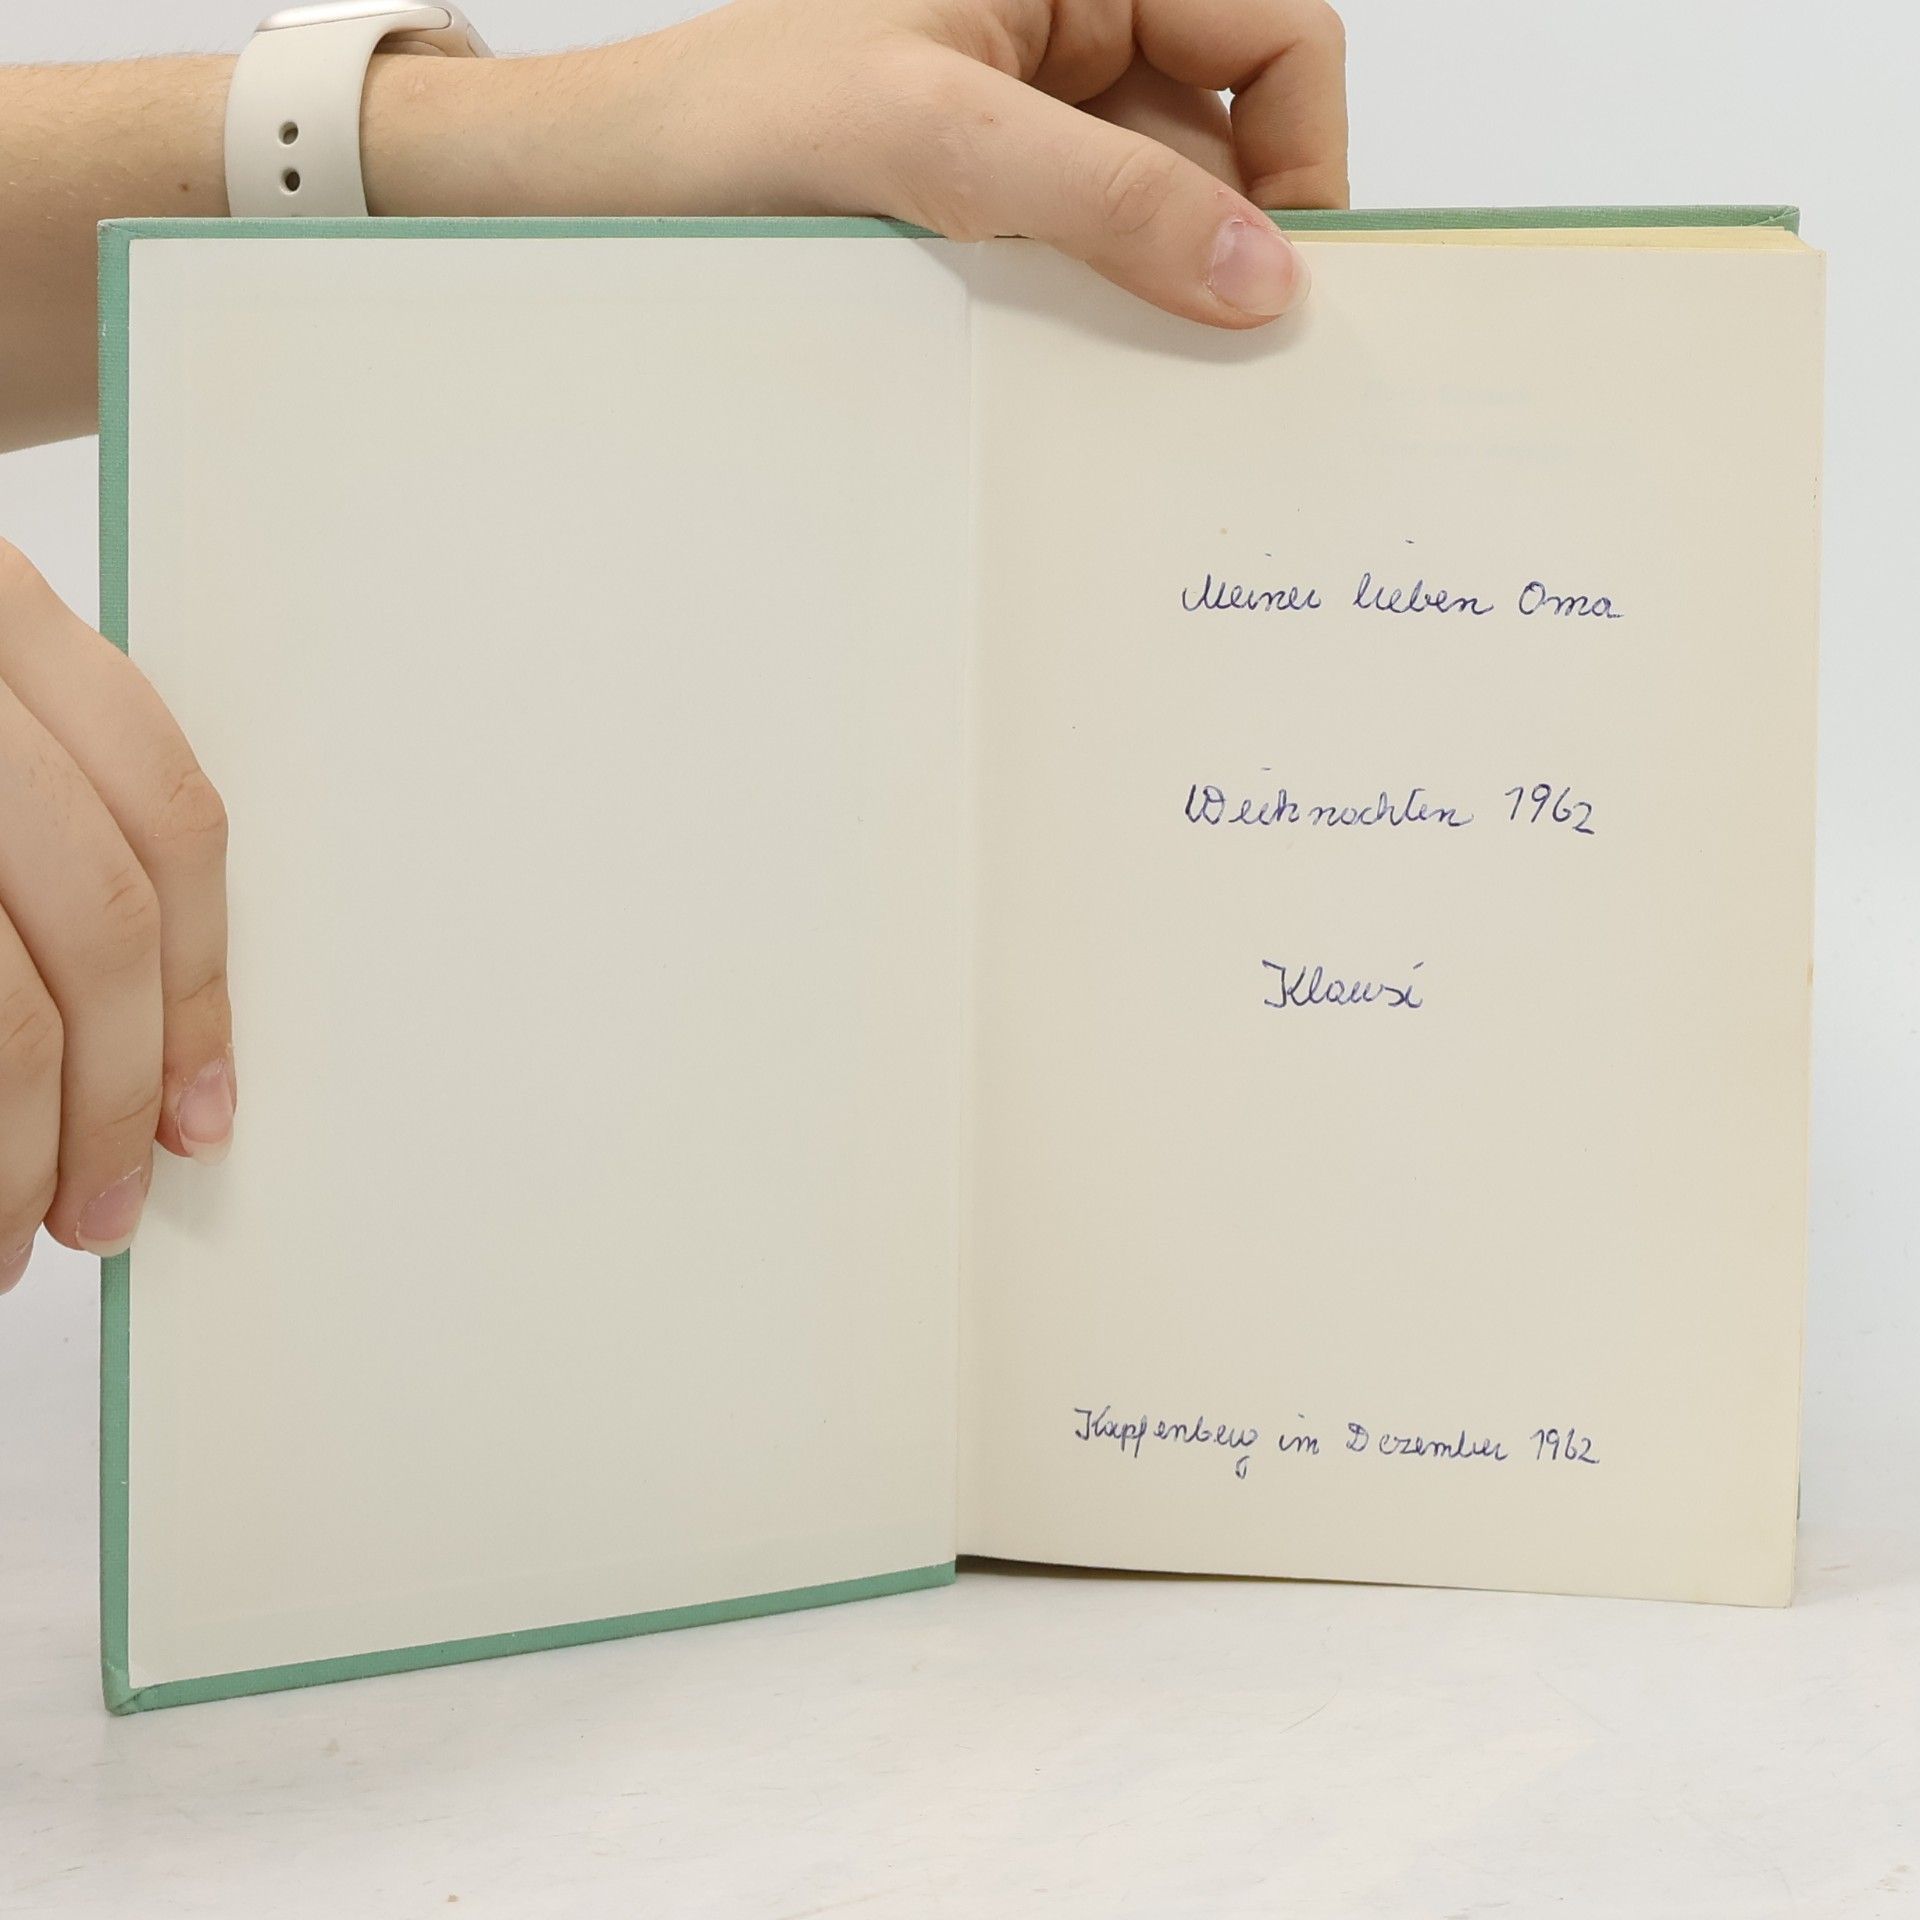 Meiner lieben Oma
Weihnachten 1962
Klausi
Kapfenberg im Dezember 1962